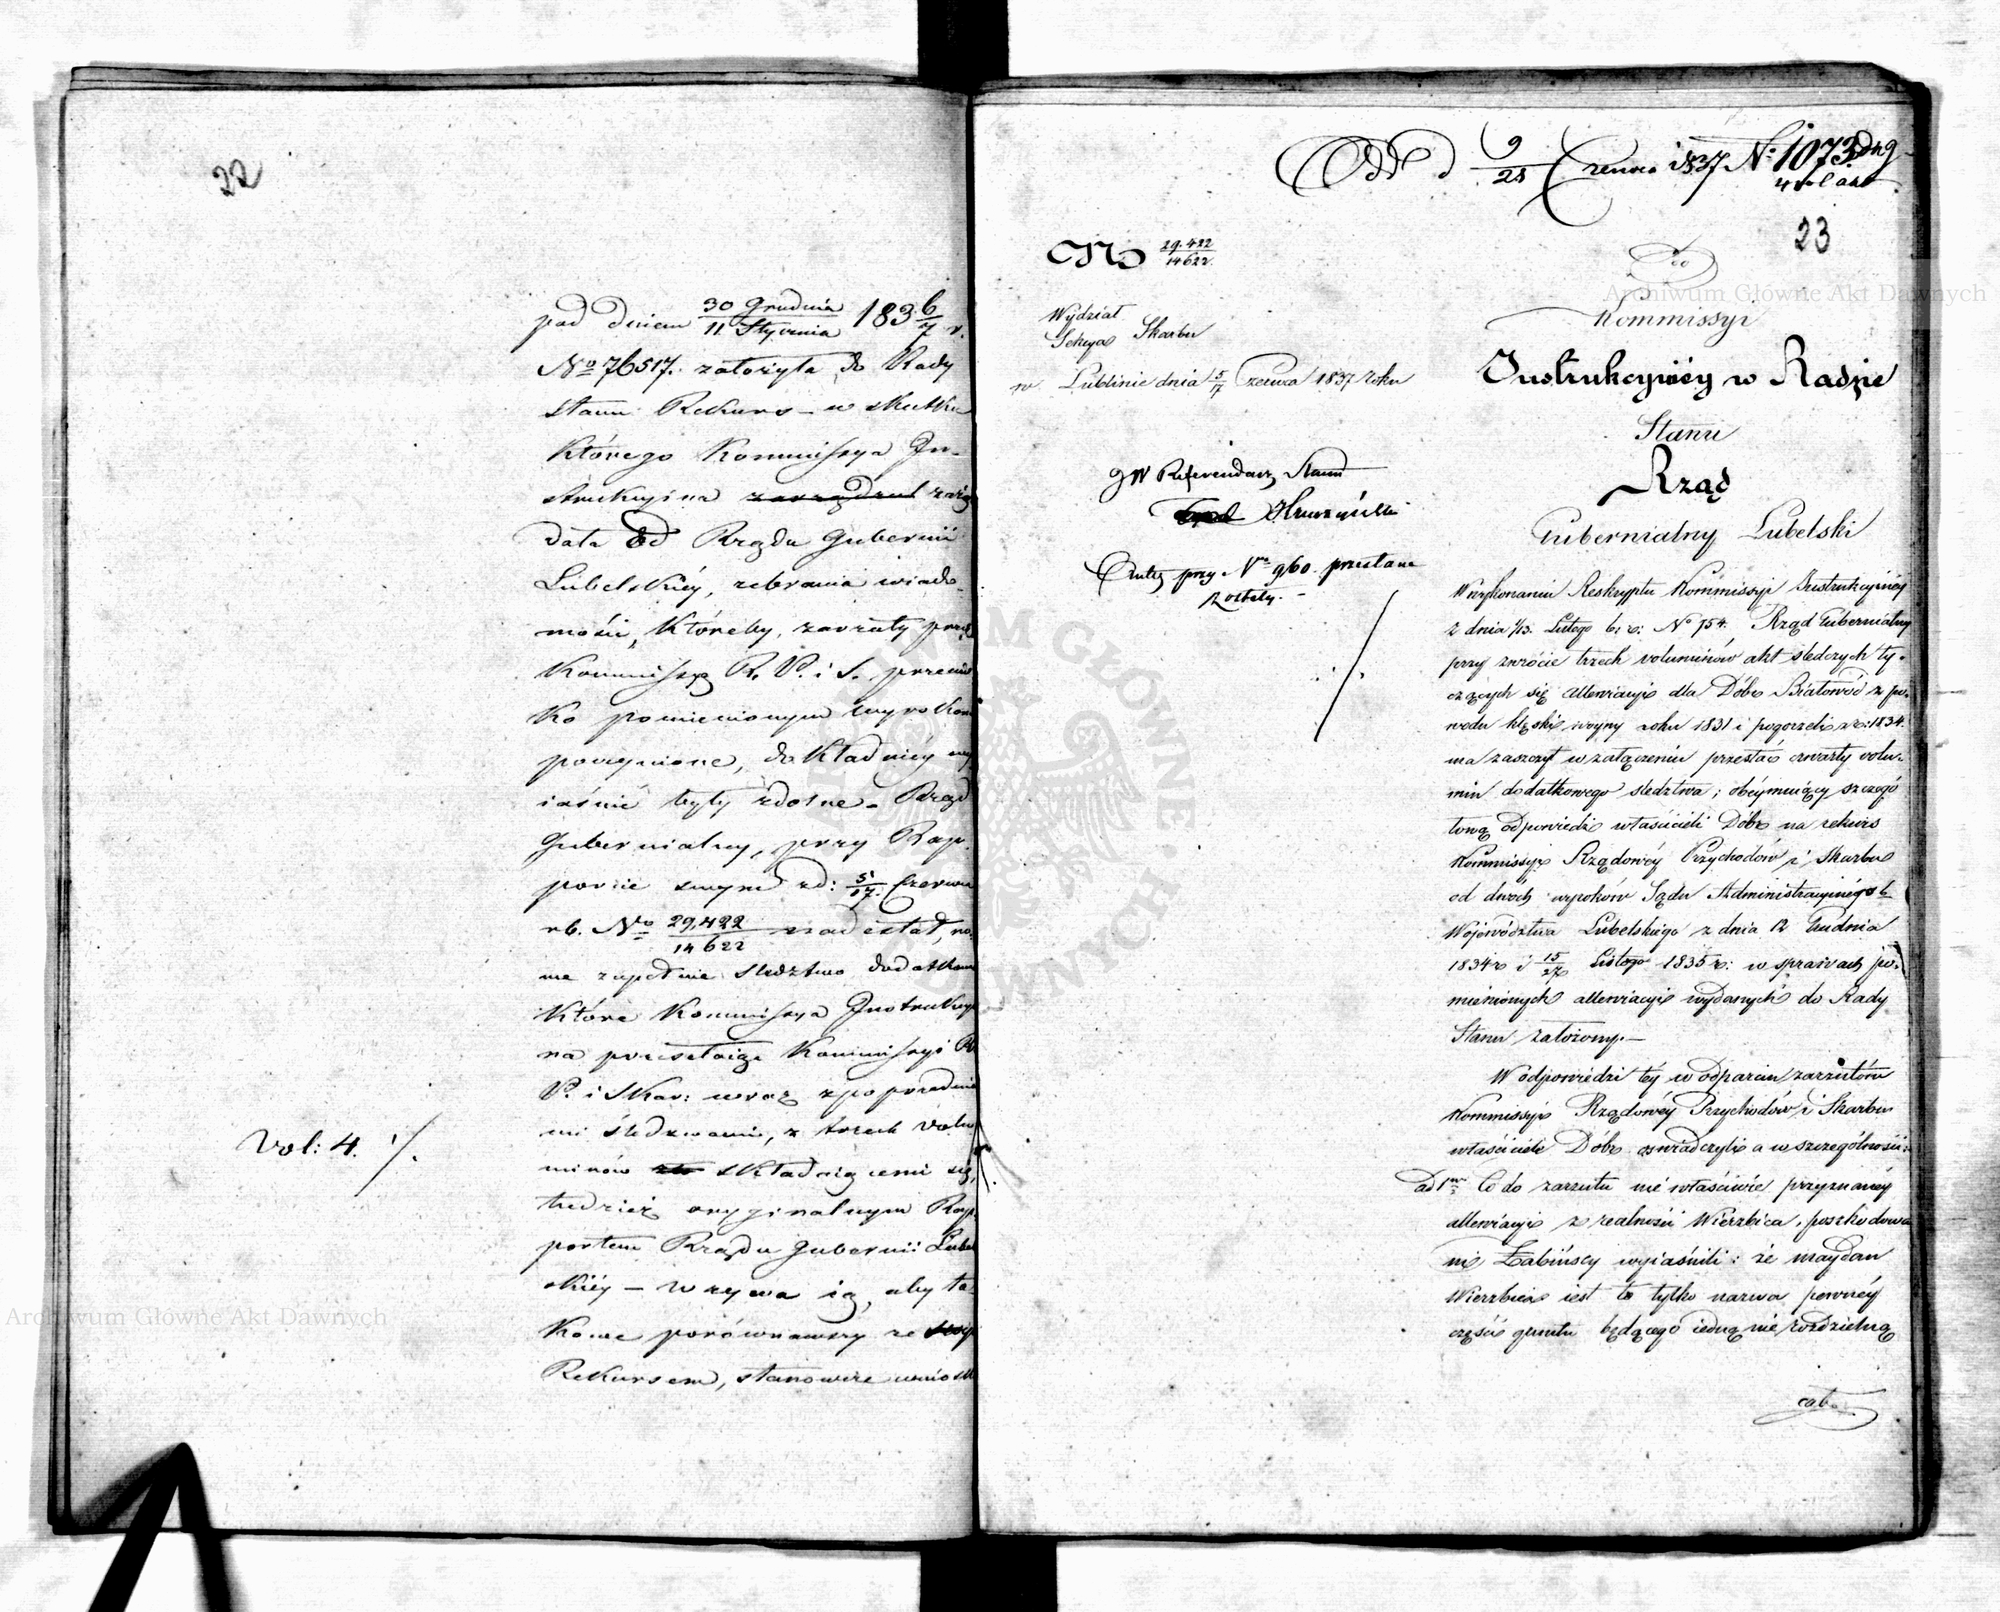 22
pod dniem 30 Grudnia / 11 Stycznia 1836/7 r.
No 76517. założyła do Rady
Stanu Rekurs – w skutku
którego Kommissya In-
strukcyjna zażą
dała od Rządu Gubernii
Lubelskiéy, zebrania wiado-
mości, któreby, zarzuty przez
Kommissyę R. P. i S. przeciw
ko pomienionym wyrokom
poczynione, dokładniéy wy
iaśnić były zdolne. Rząd
Gubernialny, przy Rap-
porcie swym z d: 5/17. Czerwca
rb. No 29,422/14622 nadesłał,
zupełnie śledztwo dodatkowe
które Kommissya Instrukcyi
na przesełaiąc Kommissyi R.
P. i Skar: wraz z poprzednie
mi śledzwami, z trzech Volu
minów składaiącemi się,
tudzież oryginalnym Rap-
portem Rządu Gubernii Lubel
skiéy – wzywa ią, aby ta-
kowe porównawszy ze
Rekursem, stanowcze wniosk
Vol: 4. ·/.
9/21 Czerwca 1837 No 1073
4 vol akt
23
No 29.422/14622.
Wydział
Sekcya Skarbu
w Lublinie dnia 5/17 Czerwca 1837 roku
JW Referendarz Stanu
przy Nrze 960. przesłane
zostały. –
Do
Kommissyi
Instrukcyinéy w Radzie
Stanu
Rząd
Gubernialny Lubelski
W wykonaniu Reskryptu Kommissyi Instrukcyinéy
z dnia 1/13. Lutego b: r: No 154. Rząd Gubernialny
przy zwrocie trzech voluminów akt śledczych ty-
czących się allewiacyi dla Dóbr Białowód z po-
wodu klęski woyny roku 1831 i pogorzeli z r: 1834.
ma zaszczyt w załączeniu przesłać czwarty volu-
min dodatkowego śledztwa; obéymuiący szczegó
łową odpowiedź właścicieli Dóbr na rekurs
Kommissyi Rządowéy Przychodów i Skarbu
od dwóch wyroków Sądu Administracyinégo b.
Województwa Lubelskiego z dnia 12 Grudnia
1834 r i 15/27 Lutego 1835 r: w sprawach po-
mienionych allewiacyi wydanych do Rady
Stanu założony. –
W odpowiedzi téy w odparciu zarzutów
Kommissyi Rządowéy Przychodów i Skarbu
właściciele Dóbr oświadczyli a w szczególności:
ad 1mo Co do zarzutu nié właściwie przyznanéy
allewiacyi z realności Wierzbica, poszkodowa
ni Żabińscy wyiaśnili: że maydan
Wierzbica iest to tylko nazwa pewnéy
części gruntu będącego iedną nie rozdzielną
cało
Archiwum Główne Akt Dawnych
Archiwum Główne Akt Dawnych
ARCHIWUM GŁÓWNE AKT DAWNYCH